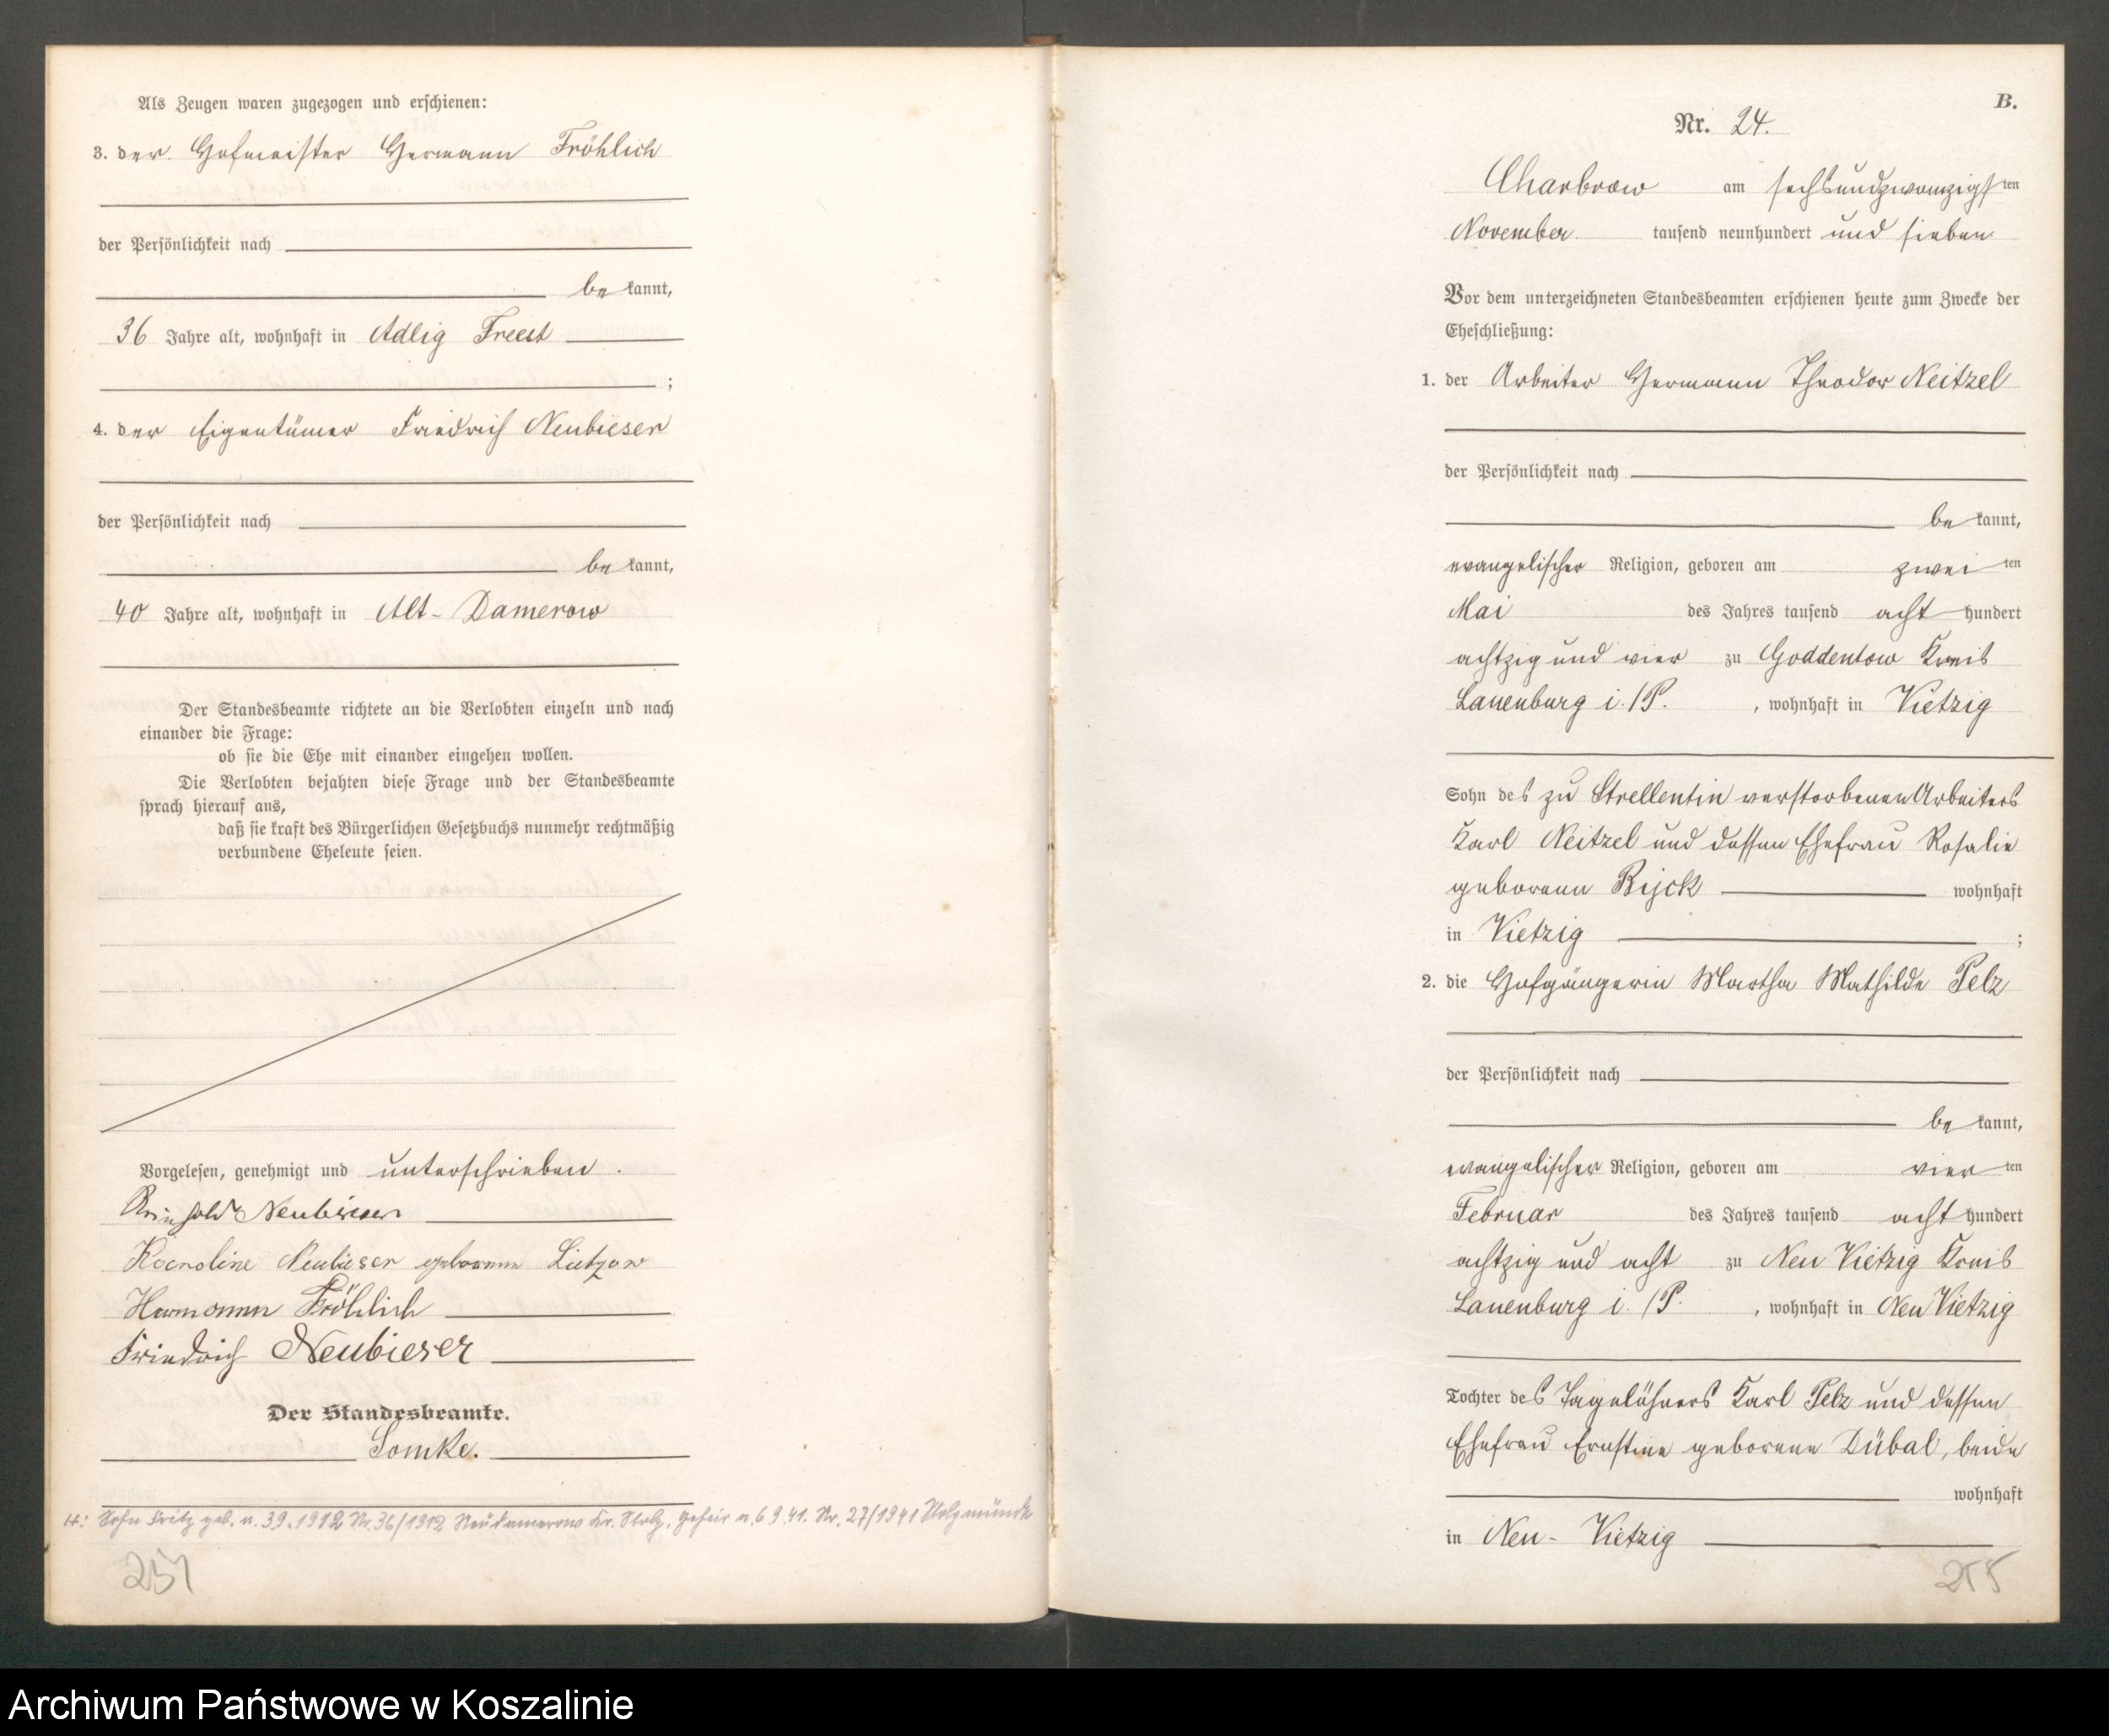 Als Zeugen waren zugezogen und erschienen:
3. der Hofmeister Hermann Fröhlich
der Persönlichkeit nach
be kannt,
36 Jahre alt, wohnhaft in Adlig Freest
;
4. der Eigentümer Friedrich Neubieser
der Persönlichkeit nach
be kannt,
40 Jahre alt, wohnhaft in Alt-Damerow
Der Standesbeamte richtete an die Verlobten einzeln und nach
einander die Frage:
ob sie die Ehe mit einander eingehen wollen.
Die Verlobten bejahten diese Frage und der Standesbeamte
sprach hierauf aus,
daß sie kraft des Bürgerlichen Gesetzbuchs nunmehr rechtmäßig
verbundene Eheleute seien.
Vorgelesen, genehmigt und unterschrieben.
Reinhold Neubieser
Karoline Neubieser geborene Lietzow
Hermann Fröhlich
Friedrich Neubieser
Der Standesbeamte.
Somke.
Sohn Fritz geb. 3.9.1912 Nr. 36/1912 Neudamerow Kr. Stolp, 6.9.41. Nr. 27/1941 Stolpmünde
B.
Nr. 24.
Charbrow am sechsundzwanzigsten
November tausend neunhundert und sieben
Vor dem unterzeichneten Standesbeamten erschienen heute zum Zwecke der
Eheschließung:
1. der Arbeiter Hermann Theodor Neitzel
der Persönlichkeit nach
be kannt,
evangelischer Religion, geboren am zwei ten
Mai des Jahres tausend acht hundert
achtzig und vier zu Goddentow Kreis
Lauenburg i./P. , wohnhaft in Vietzig
Sohn des zu Strellentin verstorbenen Arbeiters
Karl Neitzel und dessen Ehefrau Rosalie
geborenen Bijck wohnhaft
in Vietzig ;
2. die Hofgängerin Martha Mathilde Pelz
der Persönlichkeit nach
be kannt,
evangelischer Religion, geboren am vier ten
Februar des Jahres tausend acht hundert
achtzig und acht zu Neu Vietzig Kreis
Lauenburg i./P. , wohnhaft in Neu Vietzig
Tochter des Tagelöhners Karl Pelz und dessen
Ehefrau Ernstine geborene Dübal, beide
wohnhaft
in Neu-Vietzig
255
Archiwum Państwowe w Koszalinie